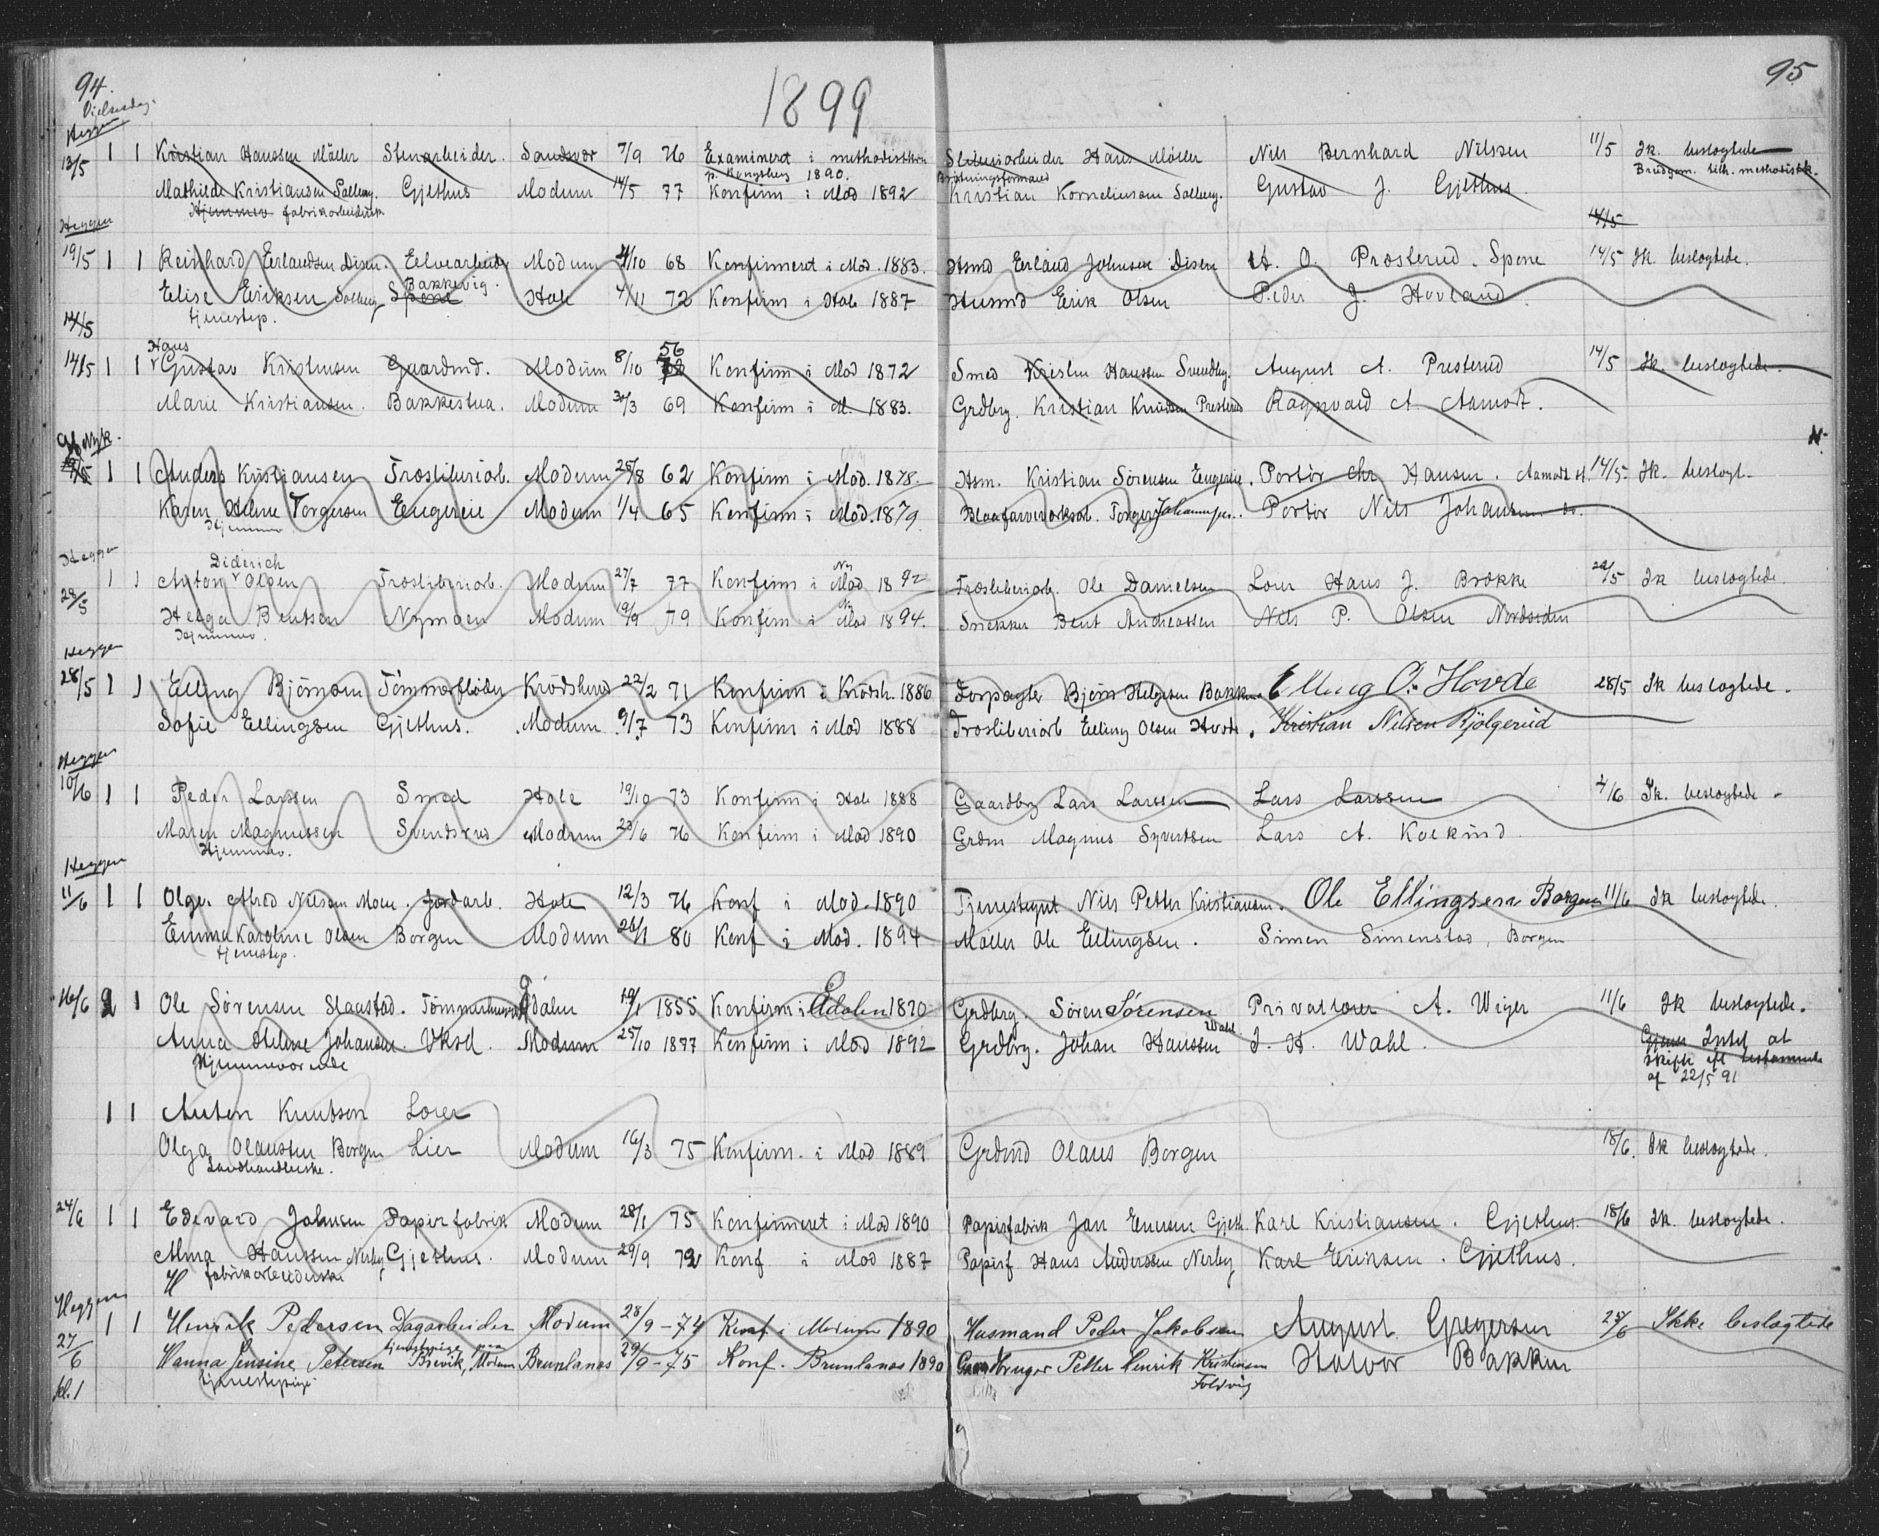 94. 1899 95
Vielsesdag.
Heggen
13/5 1 1 Kristian Hanssen Møller Stenarbeider. Sandsvær 7/9 76 Examineret i methodistkirken Hans Møller Nils Bernhard Nilssen 11/5 Ik. beslægtede
p. Kongsberg 1890. Brudgom. tilh. methodistk.
Mathilde Kristiansen Solberg Gjethus Modum 14/5 77 Konfirm i Mod 1892 Kristian Korneliussen Solberg. Gustav J. Gjethus
Hjemmev fabrikarbeiderske 14/5
Heggen
19/5 1 1 Reinhard Erlandsen Disen. Elvearbeider Modum /10 68 Konfirmeret i Mod. 1883. Hsmd Erland Johnsen Disen A. O. Præsterud. Spone 14/5 Ik. beslægtede.
Bakkevig.
Elise Eriksen Solberg Spone Hole 4/11 72 Konfirm i Hole 1887 Husmd Erik Olsen Peder J. Hovland.
tjenestep.
14/5
Hans 56
14/5 1 1 Gustav Kristensen Gaardmd. Modum 8/10 Konfirm i Mod 1872 Smed Kristen Hanssen Svendby. August A. Presterud 14/5 Ik. beslægtede
Marie Kristiansen. Bakkestua. Modum 30/3 69 Konfirm i M. 1883. Grdbrg. Kristian Knudsen Presterud Ragnvald A Aamodt.
Nyk. N.
1 1 Anders Kristiansen Træsliberiarb. Modum 28/8 62 Konfirm i Mod. 1878. Hsm. Kristian Sørensen Eugereie. Portør Chr Hansen. Aamodt st. 14/5 Ik. beslægt.
Karen Helene Torgersen Eugereie Modum 1/4 65 Konfirm i Mod. 1879. Blaafarveværksarb. Torger Johannesen. Portør Nils Johansen do.
Hjemmev
Heggen
Diderich Ny
28/5 1 1 Anton Olsen Træsliberiarb. Modum 27/7 77 Konfirm i Mod 1892 Træsliberiarb. Ole Danielsen Lærer Hans J. Brække 22/5 Ik beslægtede.
Ny
Helga Bentsen Nymoen Modum 19/9 79 Konfirm i Mod 1894. Snekker Bent Andreassen Nils P. Olsen Nordsiden
Hjemmev.
Heggen
28/5 1 1 Elling Bjørnsen Tømmerfløder Krødsherred 22/2 71 Konfirm i Krødsh. 1886 Forpagter Bjørn Helgesen Bakken Elling O. Hovde 28/5 Ik beslægtede.
Sofie Ellingsen Gjethus. Modum 9/7 73 Konfirm i Mod 1888 Træsliberiarb Elling Olsen Hovde. Kristian Nilsen Bjølgerud
Heggen
10/6 1 1 Peder Larssen Smed Hole 19/10 73 Konfirm i Hole 1888 Gaardbrg Lars Larssen Lars Larssen 4/6 Ik. beslægtede.
Maren Magnussen Svendsrud Modum 23/6 76 Konfirm i Mod 1890 Grdm Magnus Syvertsen Lars A. Kolkind.
Hjemmev.
Heggen
11/6 1 1 Olge. Alfred Nilsen Moen. Jordarb. Hole 12/3 76 Konf i Mod. 1890 Tjenestegut Nils Petter Kristiansen. Ole Ellingsen Borgen 11/6 Ik beslægtede.
Emma Karoline Olsen Borgen Modum 26/1 80 Konf i Mod. 1894 Møller Ole Ellingsen. Simen Simenstad, Borgen
tjenestep.
16/6 2 1 Ole Sørensen Slaastad. Tømmerhugger Ødalen 19/1 1855 Konfirm i Ødalen 1870 Grdbrg. Søren Sørensen Privatlærer A. Weger 11/6 Ik beslægtede.
Wahl
Anna Helene Johansen. Viksd. Modum 25/10 1877 Konfirm i Mod 1892 Grdbrg. Johan Hanssen J. H. Wahl. Intet at
Hjemmeværende skifte eft
af 22/5 91
1 1 Anton Knutsen Lærer
Olga Olaussen Borgen Lier Modum 16/3 75 Konfirm. i Mod 1889 Grdmd Olaus Borgen 18/6. Ik beslægtede.
Landhandlerske.
24/6 1 1 Edevard Johnsen Papirfabrik Modum 28/1 75 Konfirmeret i Mod 1890 Papirfabrik Jan Evensen Gjeth. Karl Kristiansen. Gjethus. 18/6 Ik. beslægtede.
Alma Hanssen Nerby Gjethus. Modum 29/9 72 Konf i Mod 1887 Papirf Hans Anderssen Nerby Karl Eriksen. Gjethus.
fabrikarbeiderske
Heggen H
27/6 1 1 Henrik Pedersen Dagarbeider Modum 28/9 - 74 Konf i Modum 1890 Husmand Peder Jakobsen August Gregersen 25/6 Ikke beslægtede
tjenestepige
kl. 1 Hanna Jensine Petersen Brevik, Modum Brunlanes 29/9 - 75 Konf. Brunlanes 1890 Gaardbruger Petter Henrik Kristensen Halvor Bakken
tjenestepige Foldvig